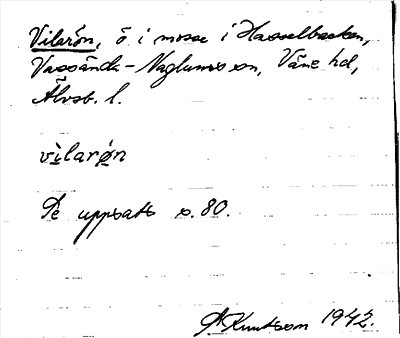 Vilarön, ö i mosse i Hasselbacken,
Vassända-Naglums sn, Väne hd,
Älvsb. l.
vilarön
Se uppsats s. 80.
Knutsson 1942.